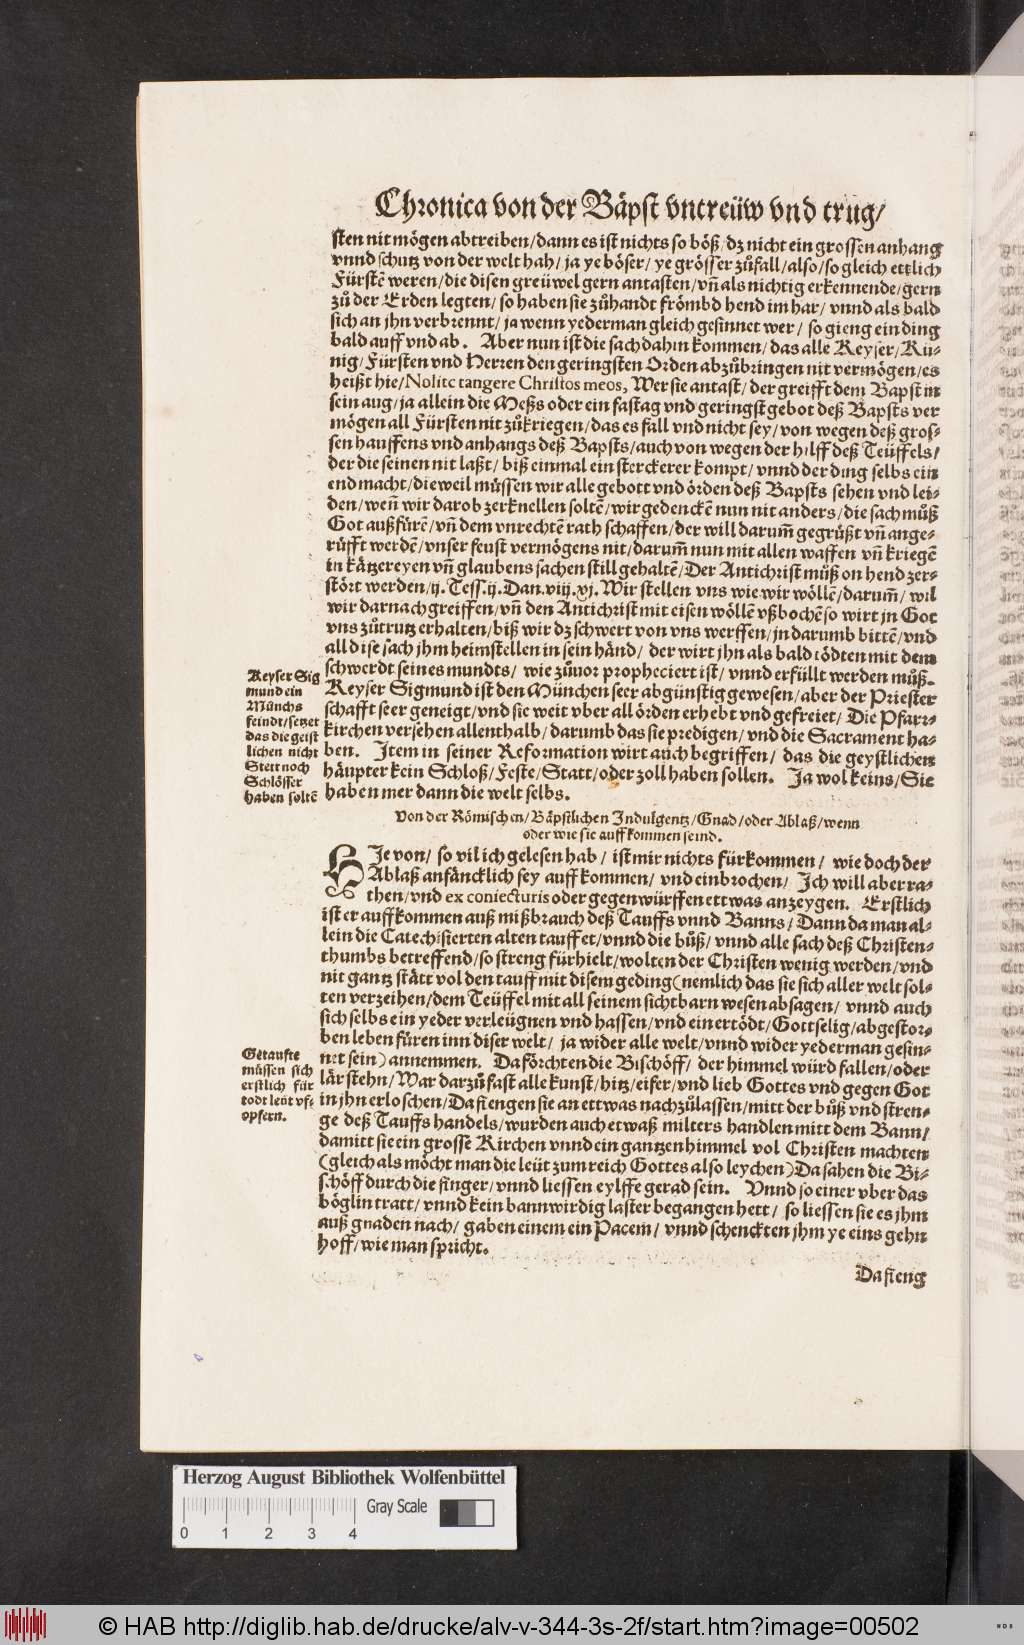 Chronica von der Bäpst vntreüw vnd trug/
sten nit mögen abtreiben/ dann es ist nichts so böß/ dz nicht ein grossen anhang
vnnd schutz von der welt hab/ ja ye böser/ ye grösser zůfall/ also/ so gleich ettlich
Fürstē weren/ die disen greüwel gern antasten/ vñ als nichtig erkennende/ gern
zů der Erden legten/ so haben sie zůhandt frömbd hend im har/ vnnd als bald
sich an jhn verbrennt/ ja wenn yederman gleich gesinnet wer/ so gieng ein ding
bald auff vnd ab. Aber nun ist die sach dahin kommen/ das alle Keyser/ Kü-
nig/ Fürsten vnd Herren den geringsten Orden abzůbringen nit vermögen/ es
heißt hie/ Nolite tangere Christos meos, Wer sie antast/ der greifft dem Bapst in
sein aug/ ja allein die Meßs oder ein fastag vnd geringst gebot deß Bapsts ver
mögen all Fürsten nit zůkriegen/ das es fall vnd nicht sey/ von wegen deß gros-
sen hauffens vnd anhangs deß Bapsts/ auch von wegen der hilff deß Teüffels/
der die seinen nit laßt/ biß einmal ein sterckerer kompt/ vnnd der ding selbs ein
end macht/ dieweil müssen wir alle gebott vnd örden deß Bapsts sehen vnd lei-
den/ weñ wir darob zerknellen soltē/ wir gedenckē nun nit anders/ die sach můß
Got außfürē/ vñ dem vnrechtē rath schaffen/ der will darum̄ gegrüßt vñ ange-
rüfft werdē/ vnser feust vermögens nit/ darum̄ nun mit allen waffen vñ kriegē
in kätzereyen vñ glaubens sachen still gehaltē/ Der Antichrist můß on hend zer-
stört werden/ ij. Tess. ij. Dan. viij. xj. Wir stellen vns wie wir wöllē/ darum̄/ wil
wir darnach greiffen/ vñ den Antichrist mit eisen wöllē vßbochē so wirt jn Got
vns zůtrutz erhalten/ biß wir dz schwert von vns werffen/ jn darumb bittē/ vnd
all dise sach jhm heimstellen in sein händ/ der wirt jhn als bald tödten mit dem
schwerdt seines mundts/ wie zůvor propheciert ist/ vnnd erfüllt werden můß.
Keyser Sigmund ist den München seer abgünstig gewesen/ aber der Priester
schafft seer geneigt/ vnd sie weit vber all örden erhebt vnd gefreiet/ Die Pfarr-
kirchen versehen allenthalb/ darumb das sie predigen/ vnd die Sacrament ha-
ben. Item in seiner Reformation wirt auch begriffen/ das die geystlichen
häupter kein Schloß/ Feste/ Statt/ oder zoll haben sollen. Ja wol keins/ Sie
haben mer dann die welt selbs.
Keyser Sig
mund ein
Münchs
feindt/ setzet
das die geist
lichen nicht
Stett noch
Schlösser
haben soltē
Von der Römischen/ Bäpstlichen Indulgentz/ Gnad/ oder Ablaß/ wenn
oder wie sie auffkommen seind.
HIe von/ so vil ich gelesen hab/ ist mir nichts fürkommen/ wie doch der
Ablaß anfäncklich sey auffkommen/ vnd einbrochen/ Ich will aber ra-
then/ vnd ex coniecturis oder gegenwürffen ettwas anzeygen. Erstlich
ist er auffkommen auß mißbrauch deß Tauffs vnnd Banns/ Dann da man al-
lein die Catechisierten alten tauffet/ vnnd die bůß/ vnnd alle sach deß Christen-
thumbs betreffend/ so streng fürhielt/ wolten der Christen wenig werden/ vnd
nit gantz stätt vol den tauff mit disem geding (nemlich das sie sich aller welt sol-
ten verzeihen/ dem Teüffel mit all seinem sichtbarn wesen absagen/ vnnd auch
sich selbs ein yeder verleügnen vnd hassen/ vnd ein ertödt/ Gottselig/ abgestor-
ben leben füren inn diser welt/ ja wider alle welt/ vnnd wider yederman gesin-
net sein) annemmen. Da förchten die Bischöff/ der himmel würd fallen/ oder
lär stehn/ War darzů fast alle kunst/ hitz/ eifer/ vnd lieb Gottes vnd gegen Got
in jhn erloschen/ Da fiengen sie an ettwas nachzůlassen/ mitt der bůß vnd stren-
ge deß Tauffs handels/ wurden auch etwaß milters handlen mitt dem Bann/
damitt sie ein grosse Kirchen vnnd ein gantzen himmel vol Christen machten
(gleich als möcht man die leüt zum reich Gottes also leychen) Da sahen die Bi-
schöff durch die finger/ vnnd liessen eylffe gerad sein. Vnnd so einer vber das
böglin tratt/ vnnd kein bannwirdig laster begangen hett/ so liessen sie es jhm
auß gnaden nach/ gaben einem ein Pacem/ vnnd schenckten jhm ye eins gehn
hoff/ wie man spricht.
Getaufte
müssen sich
erstlich für
todt leüt vf-
opfern.
Da fieng
Herzog August Bibliothek Wolfenbüttel
Gray Scale
0 1 2 3 4
© HAB http://diglib.hab.de/drucke/alv-v-344-3s-2f/start.htm?image=00502